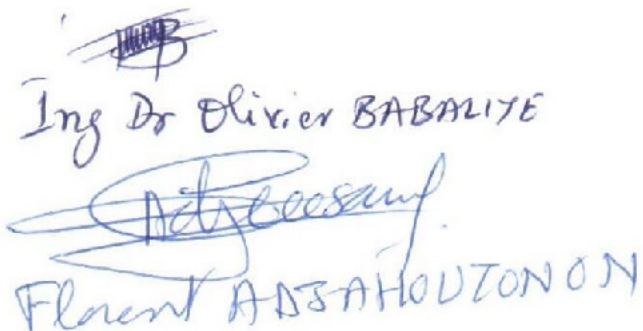 Ing Dr Olivier BABALIYE
Florent ADJAHOUTONON